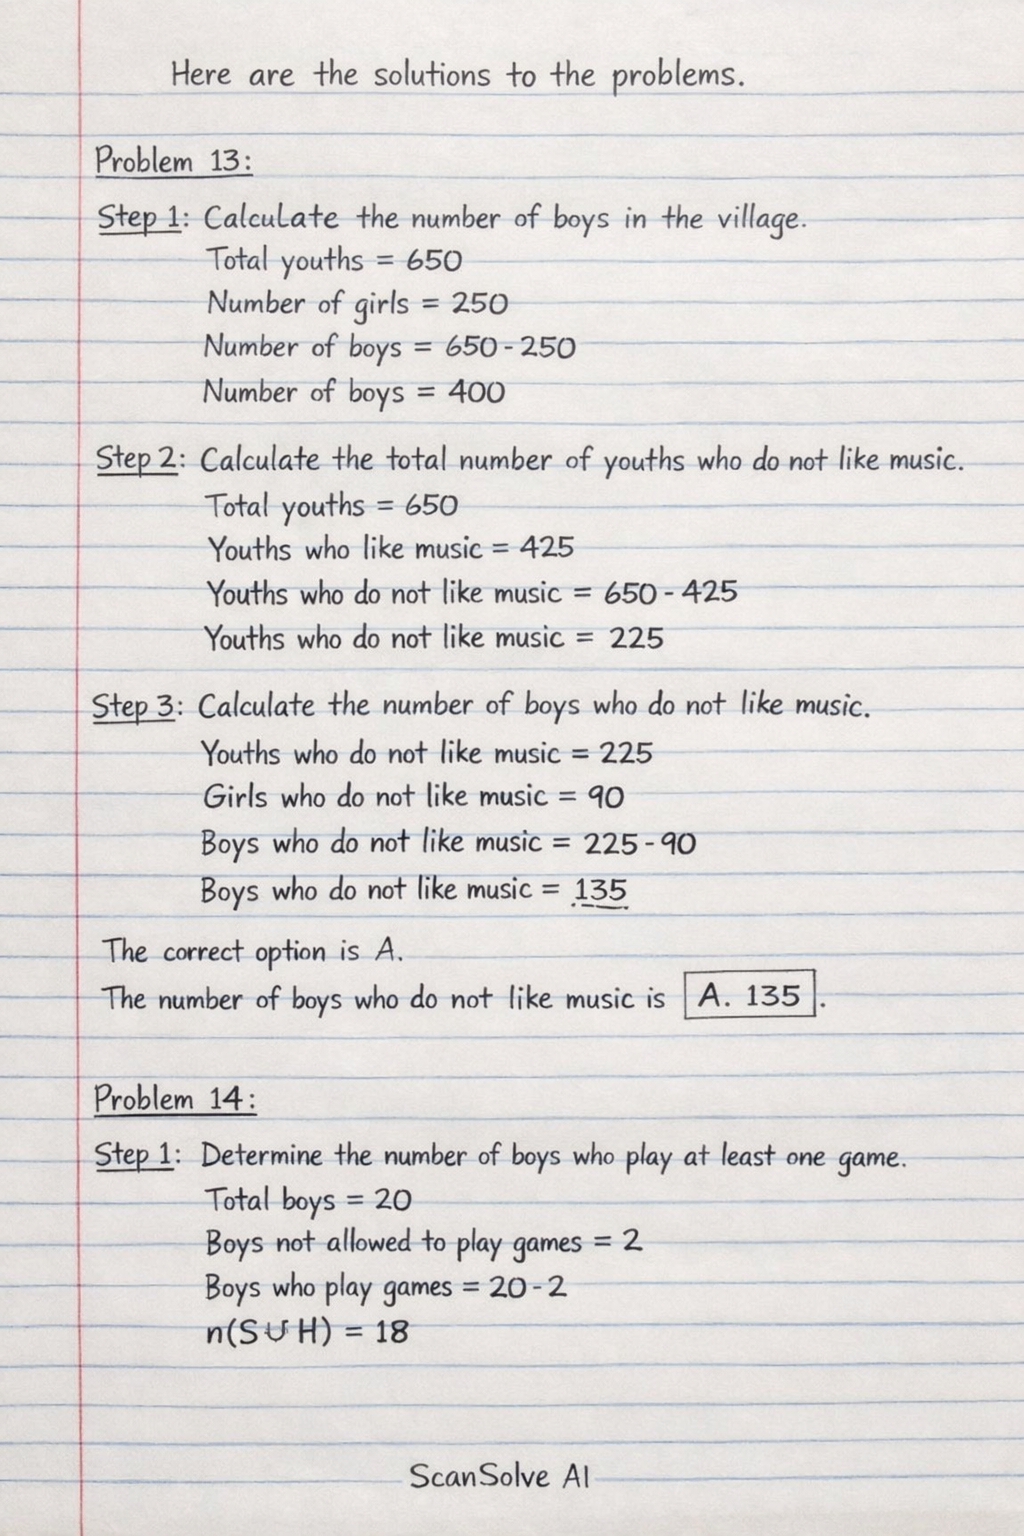 Here are the solutions to the problems.
Problem 13:
Step 1: Calculate the number of boys in the village.
Total youths = 650
Number of girls = 250
Number of boys = 650 - 250
Number of boys = 400
Step 2: Calculate the total number of youths who do not like music.
Total youths = 650
Youths who like music = 425
Youths who do not like music = 650 - 425
Youths who do not like music = 225
Step 3: Calculate the number of boys who do not like music.
Youths who do not like music = 225
Girls who do not like music = 90
Boys who do not like music = 225 - 90
Boys who do not like music = 135
The correct option is A.
The number of boys who do not like music is A. 135.
Problem 14:
Step 1: Determine the number of boys who play at least one game.
Total boys = 20
Boys not allowed to play games = 2
Boys who play games = 20 - 2
n(S ∪ H) = 18
ScanSolve AI